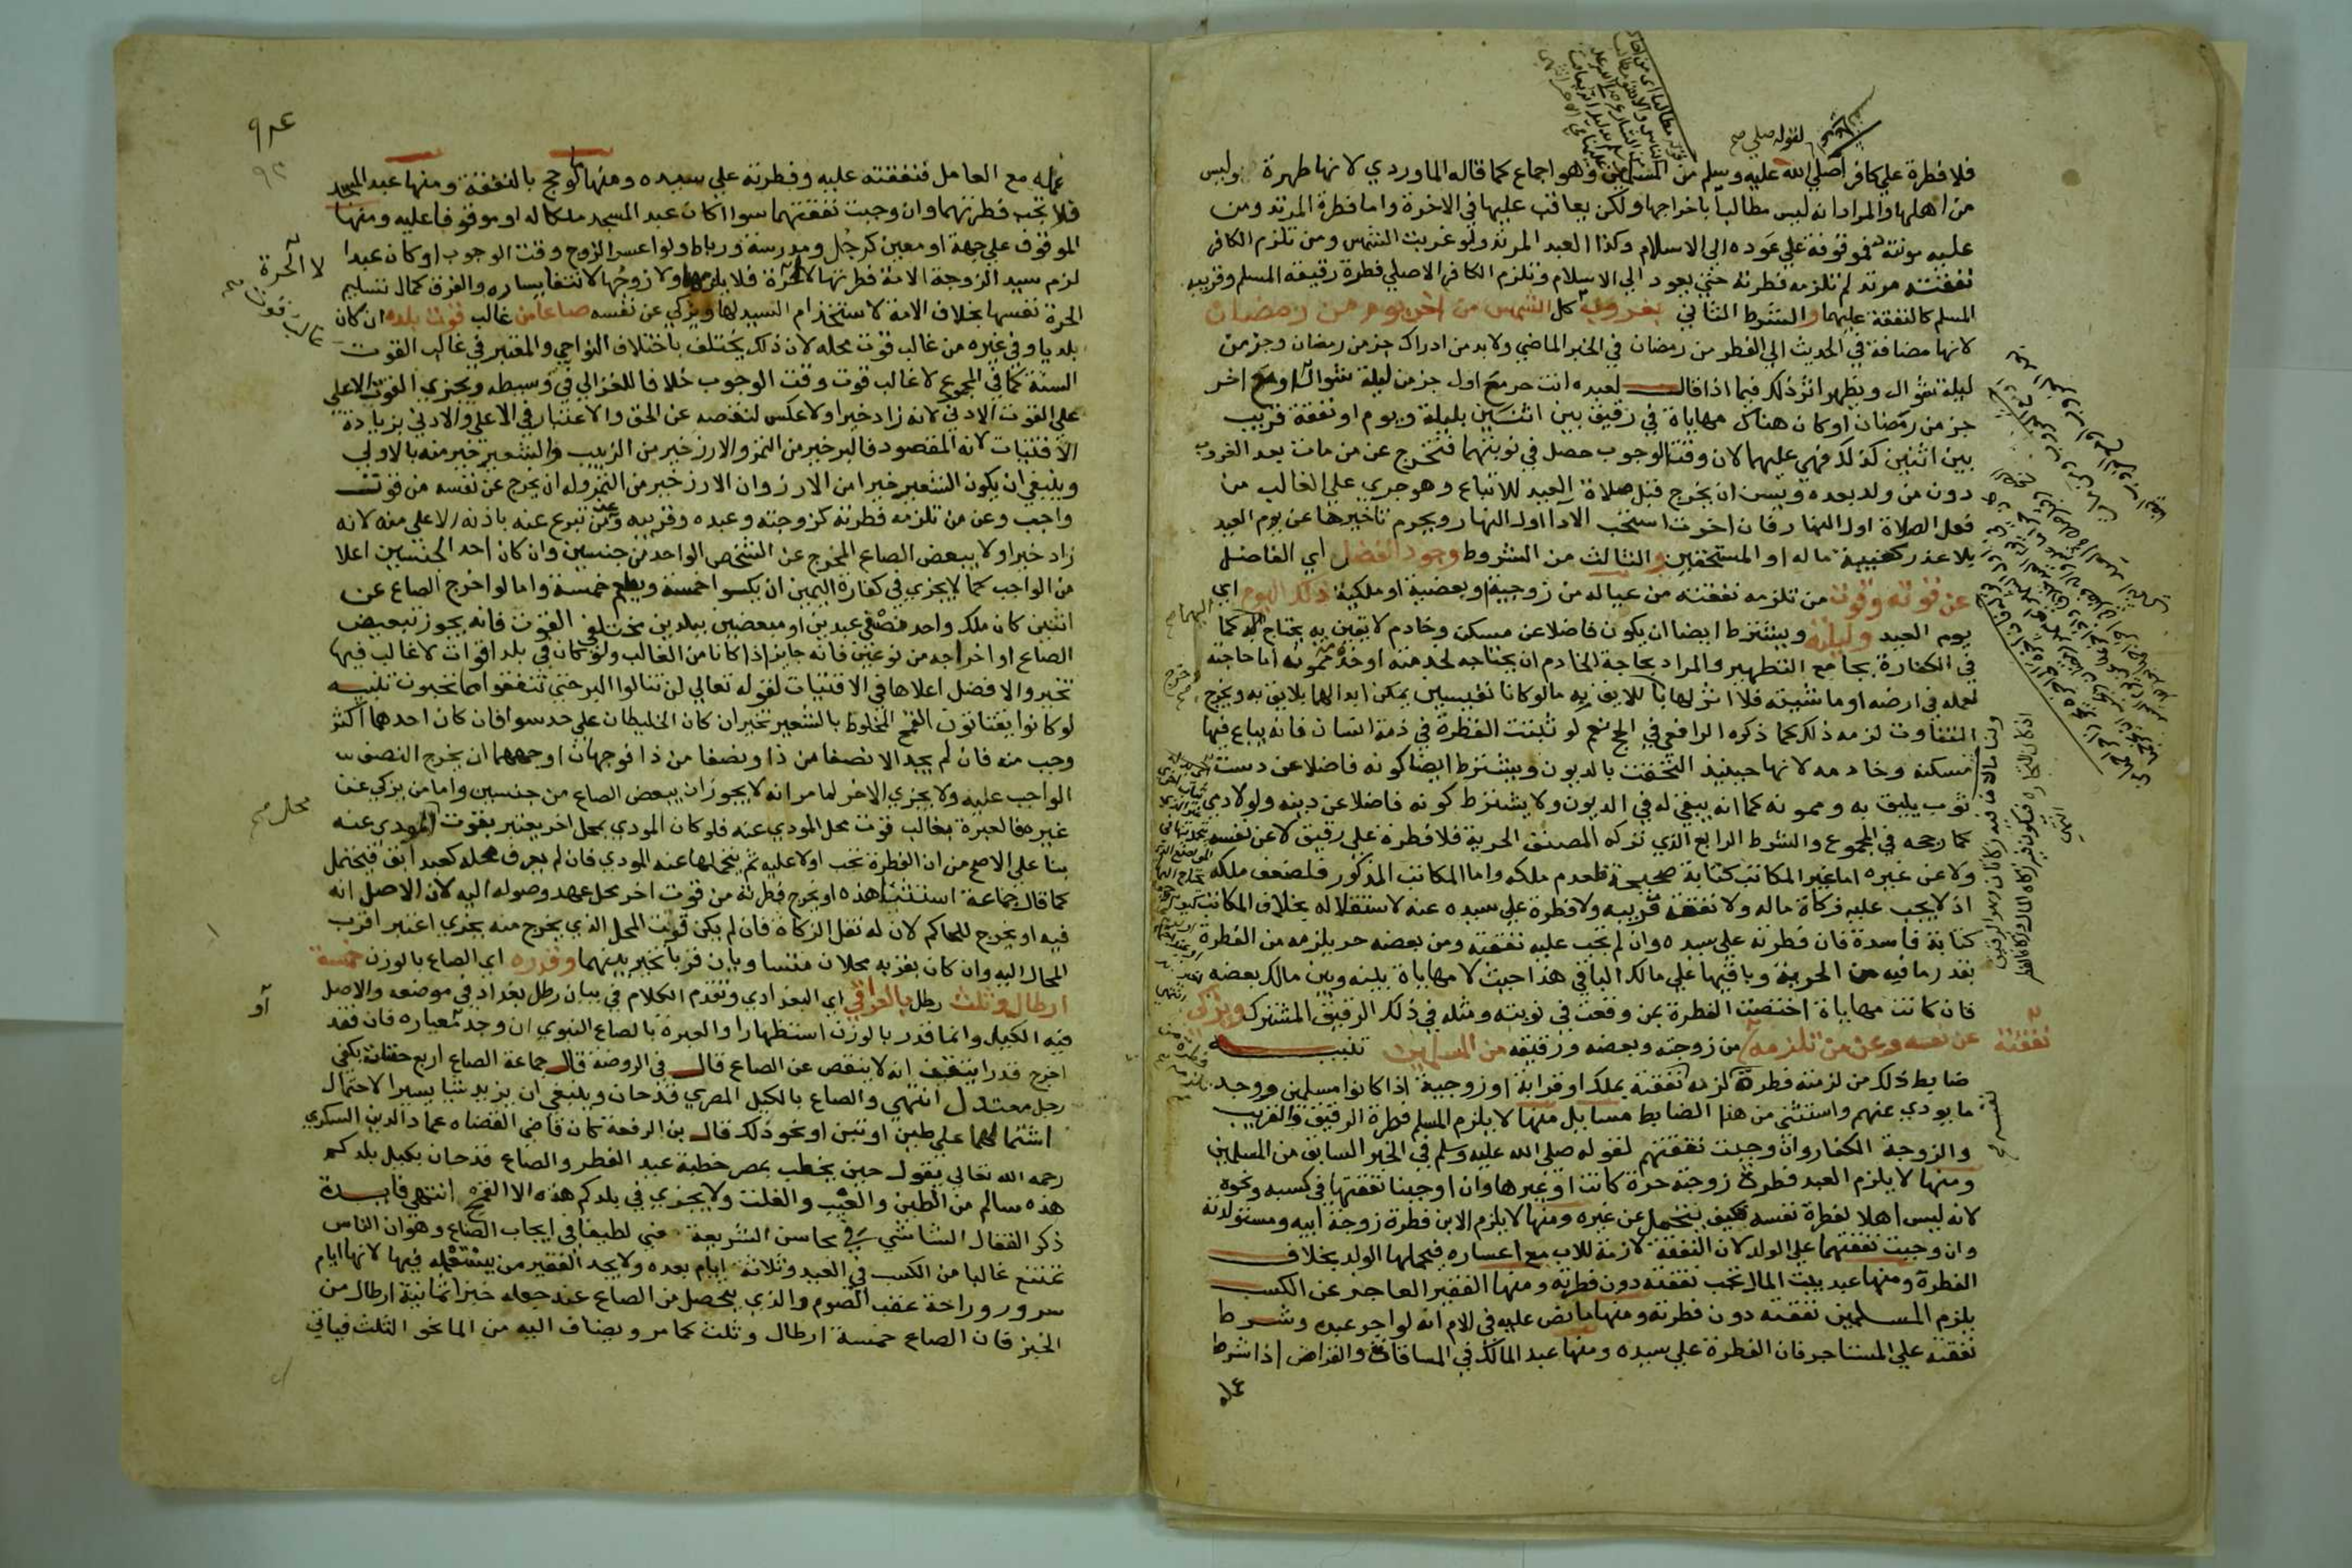 لقوله صلى
فلا فطرة علي كافر صلي الله عليه وسلم من المسلمين وهو اجماع كما قاله الماوردي لانها طهرة وليس
من اهلها والمراد انه ليس مطالبا باخراجها ولكن يعاقب عليها في الاخرة واما فطرة المرتد ومن
عليه مونته فموقوفة علي عوده الي الاسلام وكذا العبد المرتد ولو غربت الشمس ومن تلزم الكافر
نفقته مرتد لم تلزمه فطرته حتي يعود الي الاسلام وتلزم الكافر الاصلي فطرة رقيقه المسلم وقريبه
المسلم كالنفقة عليهما والشرط الثاني بغروب كل الشمس من اخر يوم من رمضان
لانها مضافة في الحديث الي الفطر من رمضان في الخبر الماضي ولا بد من ادراك جز من رمضان وجز من
ليلة شوال ويظهر اثر ذلك فيما اذا قال لعبده انت حر مع اول جز من ليلة شوال او مع اخر
جز من رمضان او كان هناك مهاياة في رقيق بين اثنين بليلة ويوم او نفقة قريب
بين اثنين كذلك فهي عليهما لان وقت الوجوب حصل في نوبتهما فتخرج عن من مات بعد الغروب
دون من ولد بعده ويسن ان يخرج قبل صلاة العيد للاتباع وهو جري علي الغالب من
فعل الصلاة اول النهار فان اخرت استحب الادا اول النهار ويحرم تاخيرها عن يوم العيد
بلا عذر كغيبة ماله او المستحقين والثالث من الشروط وجود الفضل اي الفاضل
عن قوته وقوت من تلزمه نفقته من عياله من زوجية او بعضية او ملكية ذلك اليوم اي
يوم العيد وليلته ويشترط ايضا ان يكون فاضلا عن مسكن وخادم لايقين به يحتاج اليهما كما
في الكفارة بجامع التطهير والمراد بحاجة الخادم ان يحتاجه لخدمته او خدمة ممونه اما حاجته
لعمله في ارضه او ماشيته فلا اثر لها اما لو كانا نفيسين يمكن ابدالهما بلايق به ويخرج
التفاوت لزمه ذلك كما ذكره الرافعي في الحج نعم لو ثبتت الفطرة في ذمة انسان فانه يباع فيها
مسكنه وخادمه لانها حينيذ التحقت بالديون ويشترط ايضا كونه فاضلا عن دست
ثوب يليق به وممونه كما انه يبقي له في الديون ولا يشترط كونه فاضلا عن دينه ولو لادمي
كما رجحه في المجموع والشرط الرابع الذي تركه المصنف الحرية فلا فطرة علي رقيق لا عن نفسه
ولا عن غيره اما غير المكاتب كتابة صحيحة فلعدم ملكه واما المكاتب المذكور فلضعف ملكه
اذ لا يجب عليه زكاة ماله ولا نفقة قريبه ولا فطرة علي سيده عنه لاستقلاله بخلاف المكاتب
كتابة فاسدة فان فطرته علي سيده وان لم تجب عليه نفقته ومن بعضه حر يلزمه من الفطرة
بقدر ما فيه من الحرية وباقيها علي مالك الباقي هذا حيث لا مهاياة بينه وبين مالك بعضه
فان كانت مهاياة اختصت الفطرة بمن وقعت في نوبته ومثله في ذلك الرقيق المشترك ويزكي
عن نفسه وعن من تلزمه نفقته من زوجته وبعضه ورقيقه من المسلمين تنبيه
ضابط ذلك من لزمته فطرة لزمه نفقته بملك او قرابة او زوجية اذا كانوا مسلمين ووجد
ما يودي عنهم واستثني من هذا الضابط مسايل منها لا يلزم المسلم فطرة الرقيق والقريب
والزوجة الكفار وان وجبت نفقتهم لقوله صلي الله عليه وسلم في الخبر السابق من المسلمين
ومنها لا يلزم العبد فطرة زوجته حرة كانت او غيرها وان اوجبنا نفقتها في كسبه ونحوه
لانه ليس اهلا لفطرة نفسه فكيف يتحمل عن غيره ومنها لا يلزم الابن فطرة زوجة ابيه ومستولدته
وان وجبت نفقتهما علي الولد لان النفقة لازمة للاب مع اعساره فيحملها الولد بخلاف
الفطرة ومنها عبد بيت المال تجب نفقته دون فطرته ومنها الفقير العاجز عن الكسب
يلزم المسلمين نفقته دون فطرته ومنها ما نص عليه في الام انه لو اجر عبده وشرط
نفقته علي المستاجر فان الفطرة علي سيده ومنها عبد المالك في المساقاة والقراض اذا شرط
عمله
عمله مع العامل فنفقته عليه وفطرته علي سيده ومنها لو حج بالنفقة ومنها عبد المسجد
فلا تجب فطرتهما وان وجبت نفقتهما سوا اكان عبد المسجد ملكا له او موقوفا عليه ومنها
الموقوف علي جهة او معين كرجل ومدرسة ورباط ولو اعسر الزوج وقت الوجوب او كان عبدا
لزم سيد الزوجة الامة فطرتها لا الحرة فلا يلزمها ولا زوجها لانتفا يساره والفرق كمال تسليم
الحرة نفسها بخلاف الامة لاستخدام السيد لها ويزكي عن نفسه صاعا من غالب قوت بلده ان كان
بلديا وفي غيره من غالب قوت محله لان ذلك يختلف باختلاف النواحي والمعتبر في غالب القوت
السنة كما في المجموع لا غالب قوت وقت الوجوب خلافا للغزالي في وسيطه ويجزي القوت الاعلي
علي القوت الادني لانه زاد خيرا ولا عكس لنقصه عن الحق والاعتبار في الاعلي والادني بزيادة
الاقتيات لانه المقصود فالبر خير من التمر والارز خير من الزبيب والشعير خير منه بالاولي
وينبغي ان يكون الشعير خيرا من الارز وان الارز خير من التمر وله ان يخرج عن نفسه من قوت
واجب وعن من تلزمه فطرته كزوجته وعبده وقريبه وعمن تبرع عنه باذنه الاعلي منه لانه
زاد خيرا ولا يبعض الصاع المخرج عن الشخص الواحد من جنسين وان كان احد الجنسين اعلا
من الواجب كما لا يجزي في كفارة اليمين ان يكسوا خمسة ويطعم خمسة واما لو اخرج الصاع عن
اثنين كان ملك واحد نصفي عبدين او مبعضين ببلدين مختلفي القوت فانه يجوز تبعيض
الصاع او اخراجه من نوعين فانه جايز اذا كانا من الغالب ولو كان في بلد اقوات لا غالب فيها
تخير والافضل اعلاها في الاقتيات لقوله تعالي لن تنالوا البر حتي تنفقوا مما تحبون تنبيه
لو كانوا يقتاتون القمح المخلوط بالشعير تخير ان كان الخليطان علي حد سوا فان كان احدهما اكثر
وجب منه فان لم يجد الا نصفا من ذا ونصفا من ذا فوجهان اوجههما ان يخرج النصف
الواجب عليه ولا يجزي الاخر لما مر انه لا يجوز ان يبعض الصاع من جنسين واما من يزكي عن
غيره فالعبرة بغالب قوت محل المودي عنه فلو كان المودي بمحل اخر يعتبر بقوت محل المودي عنه
بنا علي الاصح من ان الفطرة تجب اولا عليه ثم يتحملها عنه المودي فان لم يعرف محله كعبد ابق فيحتمل
كما قال جماعة استثنا هذه او يخرج فطرته من قوت اخر محل عهد وصوله اليه لان الاصل انه
فيه او يخرج للحاكم لان له نقل الزكاة فان لم يكن قوت المحل الذي يخرج منه يجزي اعتبر اقرب
المحال اليه وان كان بقربه محلان متساويان قربا تخير بينهما وقدره اي الصاع بالوزن خمسة
ارطال وثلث رطل بالعراقي اي البغدادي وتقدم الكلام في بيان رطل بغداد في موضعه والاصل
فيه الكيل وانما قدر بالوزن استظهارا والعبرة بالصاع النبوي ان وجد او معياره فان فقد
اخرج قدرا يتيقن انه لا ينقص عن الصاع قال في الروضة قال جماعة الصاع اربع حفنات بكفي
رجل معتدل انتهي والصاع بالكيل المصري قدحان وينبغي ان يزيد شيا يسيرا لاحتمال
اشتمالهما علي طين او تبن او نحو ذلك قال بن الرفعة كان قاضي القضاه عماد الدين السكري
رحمه الله تعالي يقول حين يخطب بمصر خطبة عيد الفطر والصاع قدحان بكيل بلدكم
هذه سالم من الطين والعيب والغلت ولا يجزي في بلدكم هذه الا القمح انتهي فايدة
ذكر القفال الشاشي في محاسن الشريعة معني لطيفا في ايجاب الصاع وهو ان الناس
تمتنع غالبا من الكسب في العيد وثلاثة ايام بعده ولا يجد الفقير من يستعمله فيها لانها ايام
سرور وراحة عقب الصوم والذي يتحصل من الصاع عند جعله خبزا ثمانية ارطال من
الخبز فان الصاع خمسة ارطال وثلث كما مر ويضاف اليه من الما نحو الثلث فياتي